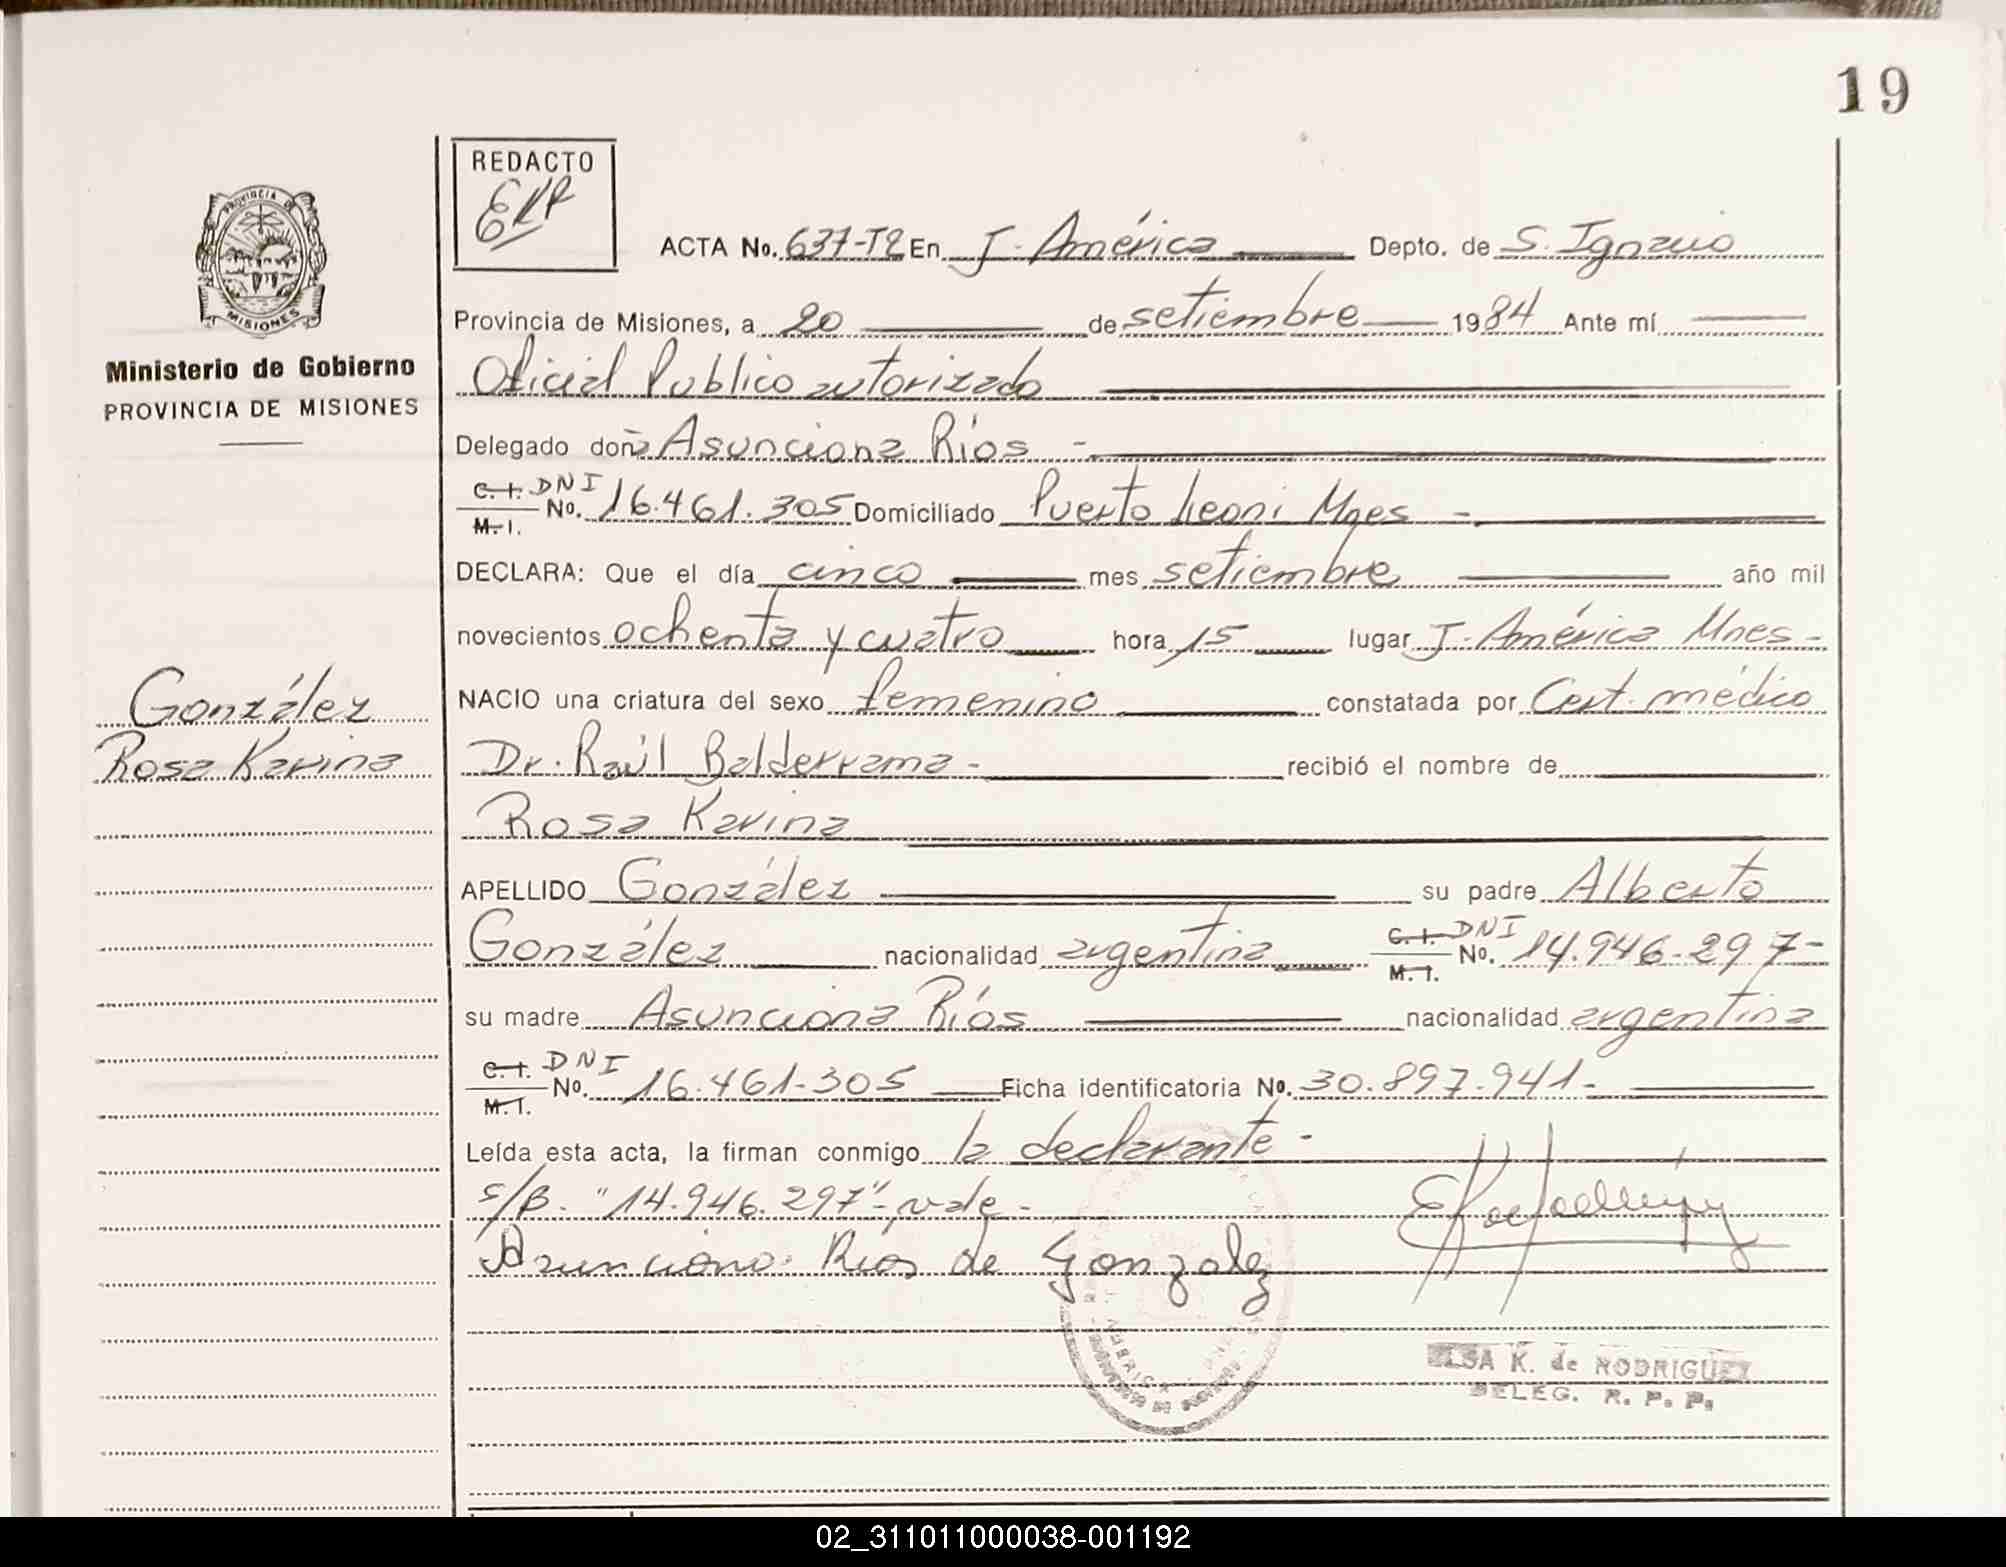 19
PROVINCIA DE
MISIONES
Ministerio de Gobierno
PROVINCIA DE MISIONES
González
Rosa Karina
REDACTO
EKR
ACTA No. 637-T2 En J. América Depto. de S. Ignacio
Provincia de Misiones, a 20 de setiembre 1984 Ante mí
Oficial Publico autorizado
Delegado doña Asunciona Ríos -
C.I. DNI
M.I. No. 16.461.305 Domiciliado Puerto Leoni Mnes -
DECLARA: Que el día cinco mes setiembre año mil
novecientos ochenta y cuatro hora 15 lugar J. América Mnes-
NACIO una criatura del sexo femenino constatada por Cert. médico
Dr. Raúl Balderrama - recibió el nombre de
Rosa Karina
APELLIDO González su padre Alberto
González nacionalidad argentina C.I. DNI
M.I. No. 14.946.297-
su madre Asunciona Ríos nacionalidad argentina
C.I. DNI
M.I. No. 16.461.305 Ficha identificatoria No. 30.897.941-
Leída esta acta, la firman conmigo la declarante -
s/B. "14.946.297"- vale -
Asunciona Ríos de Gonzalez
ELSA K. de RODRIGUEZ
DELEG. R. P. P.
02_311011000038-001192